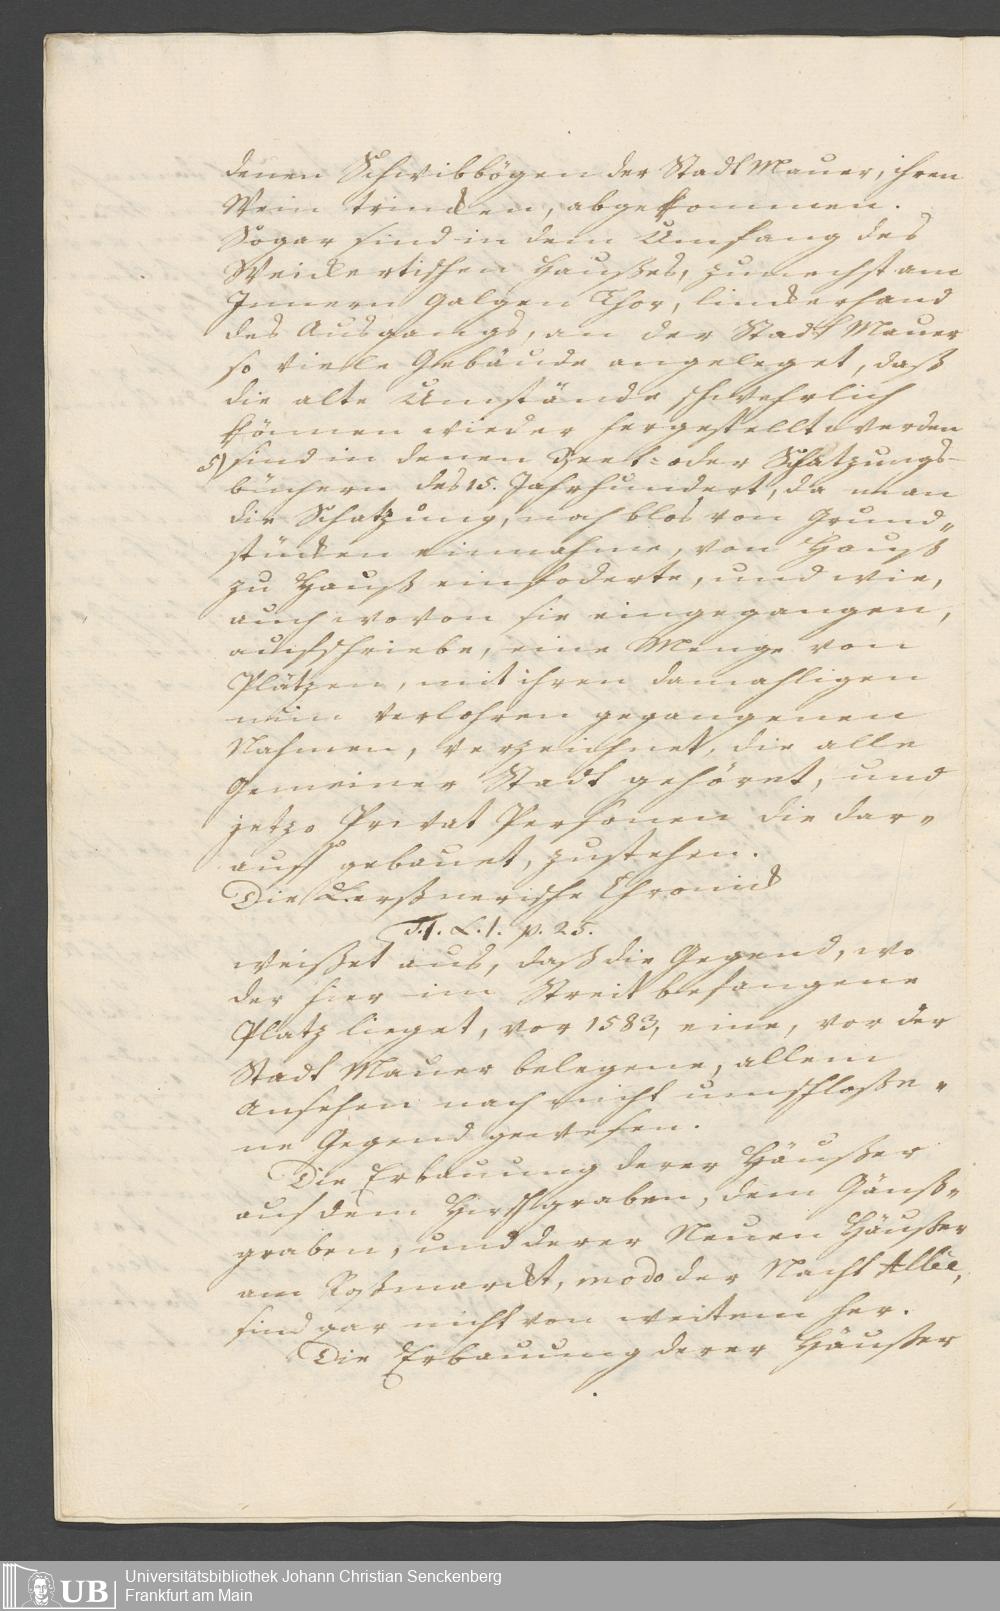 denen Schwibbögen der Stadt Mauer, ihren
Wein trincken, abgekommen.
Sogar sind in dem Umfang des
Weickertischen Haußes, zunechst am
Innern Galgen Thor, linckerhand
des Ausgangs, an der Stadt Mauer
so vielle Gebäude angeleget, daß
die alte Umstände schwehrlich
können wieder hergestellt werden
5) sind in denen Beet- oder Schatzungs-
büchern des 15. Jahrhundert, da man
die Schatzung, noch blos von Grund„
stücken einnahme, von Hauß
zu Hauß einfoderte, und wie,
auch wovon sie eingegangen,
aufschriebe, eine Menge von
Plätzen, mit ihren damahligen
nun verlohren gegangenen
Nahmen, verzeichnet, die alle
Gemeiner Stadt gehöret, und
jetzo Privat Personen die dar„
auff gebauet, zustehen.
Die Lerßnerische Chronick
T. I. L. I. p. 25.
weißet aus, daß die Gegend, wo
der hier im Streit befangene
Platz lieget, vor 1583, eine, vor der
Stadt Mauer belegene, allem
Ansehen nach nicht umschloße„
ne Gegend gewesen.
Die Erbauung derer Häußer
auf dem Hirschgraben, dem Gänß„
graben, und derer Neuen Häußer
am Roßmarckt, modo der Nacht Allée,
sind gar nicht von weitem her.
Die Erbauung derer Häußer
UB
Universitätsbibliothek Johann Christian Senckenberg
Frankfurt am Main